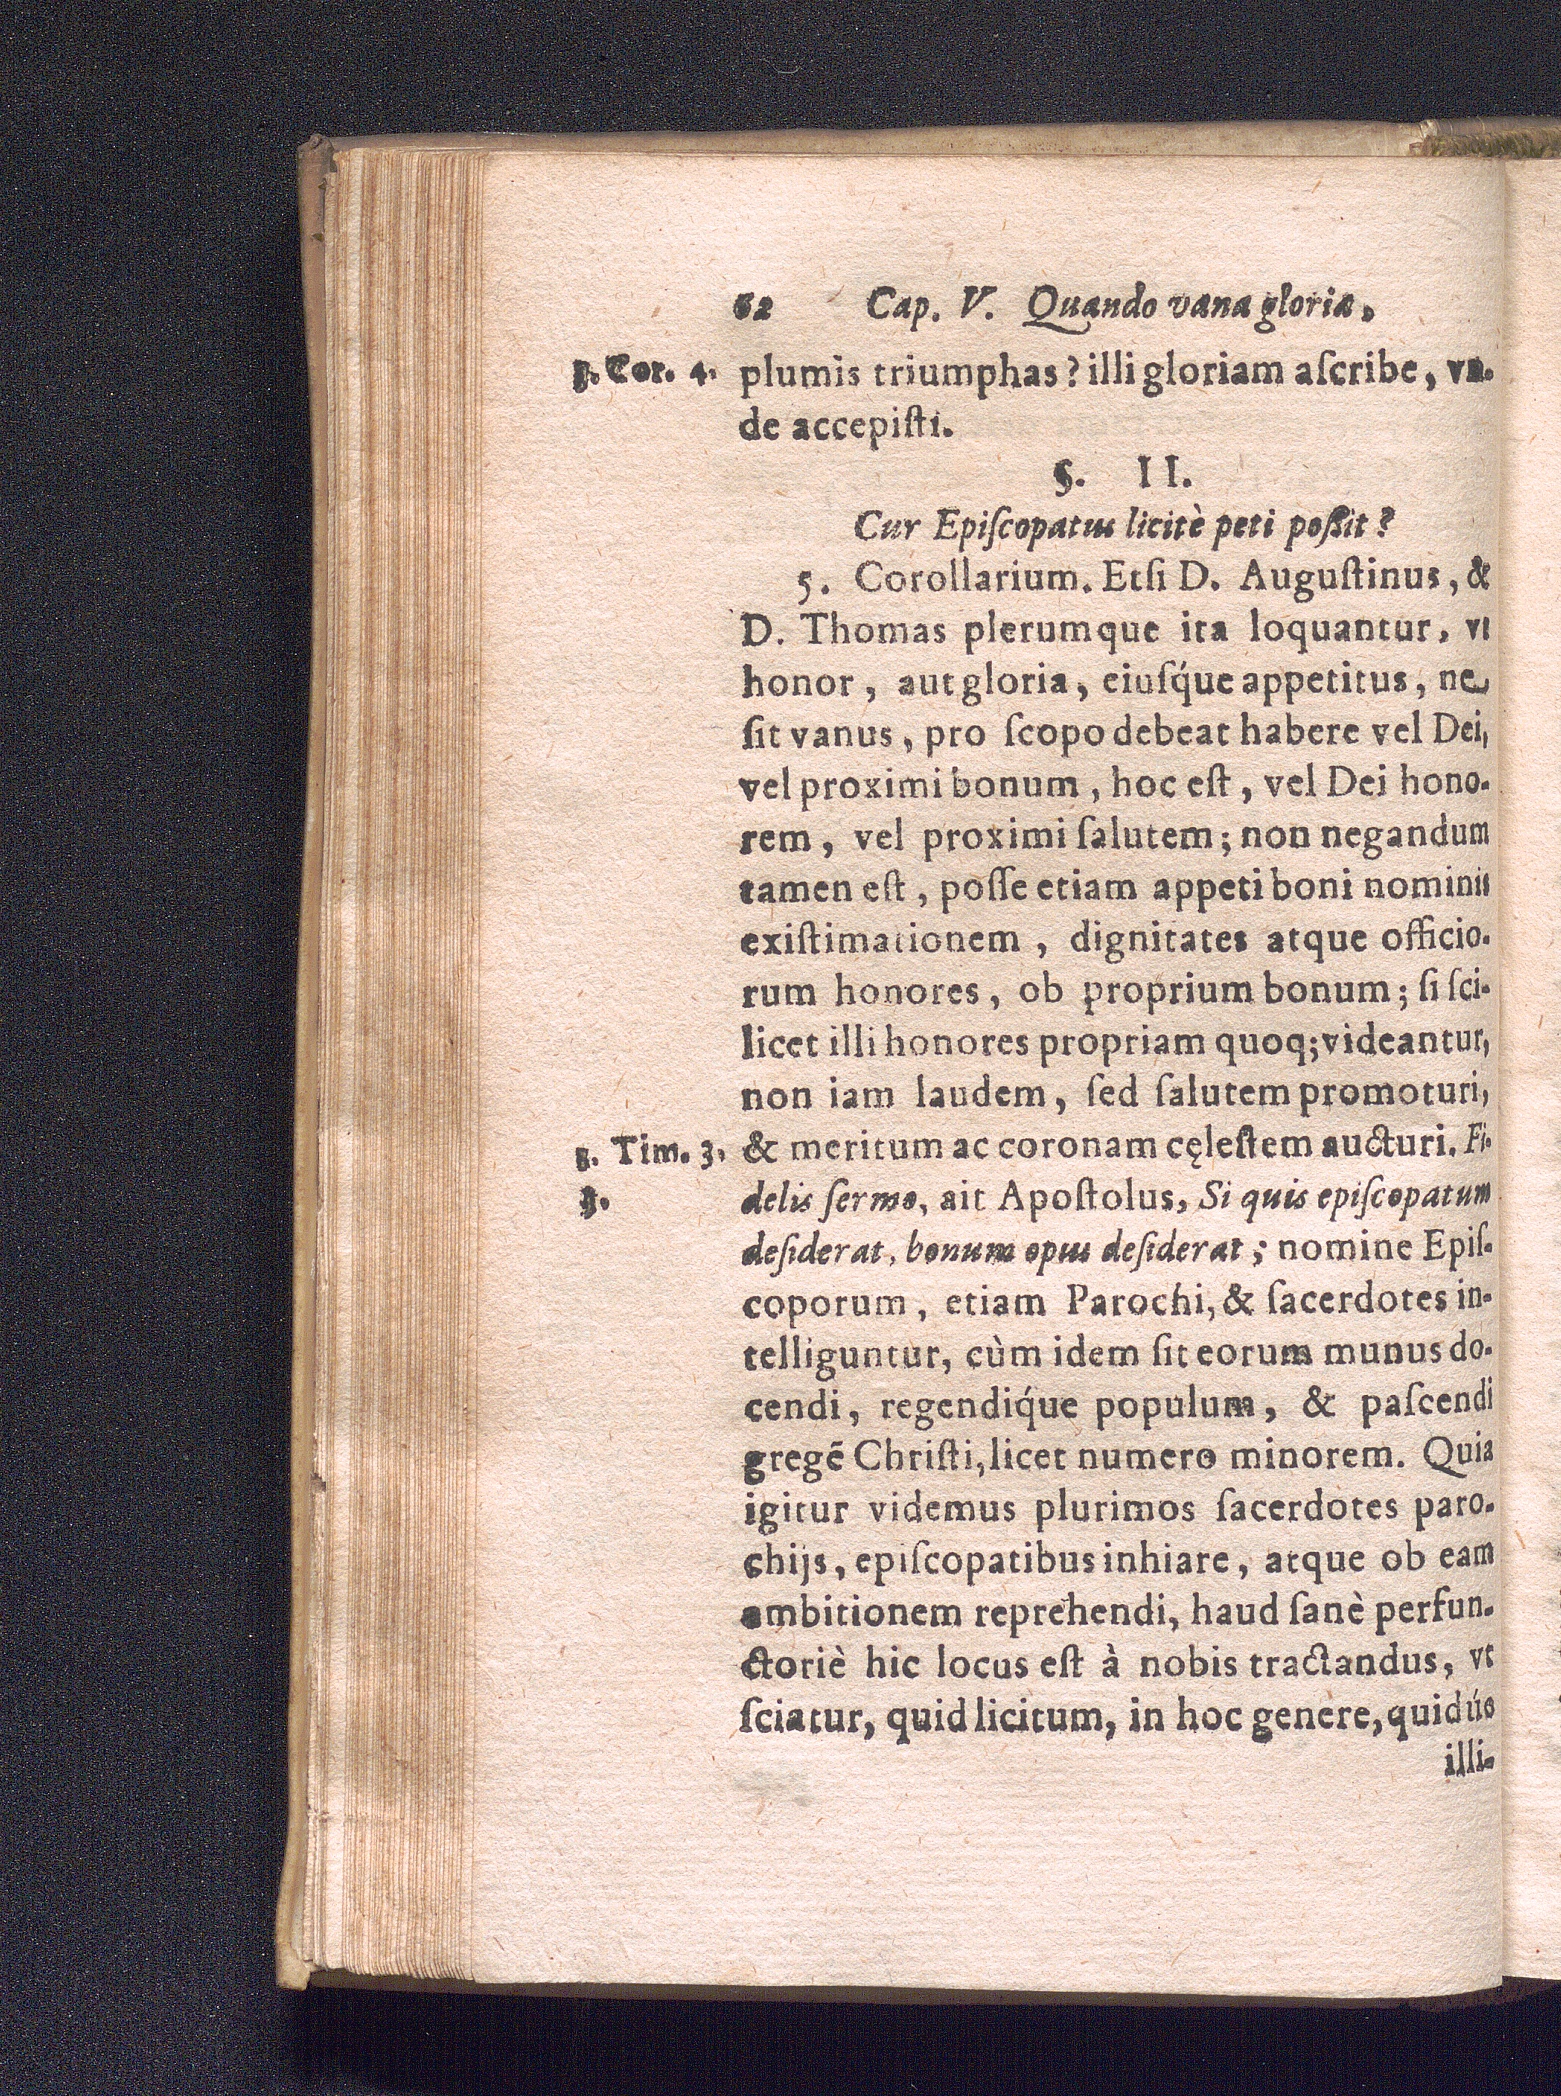 62 Cap. V. Quando vana gloria,
1. Cor. 4. plumis triumphas? illi gloriam aſcribe, vn-
de accepiſti.
§. II.
Cur Epiſcopatus licitè peti poſſit?
5. Corollarium. Etſi D. Auguſtinus, &
D. Thomas plerumque ita loquantur, vt
honor, aut gloria, eiuſq́ue appetitus, ne
ſit vanus, pro ſcopo debeat habere vel Dei,
vel proximi bonum, hoc eſt, vel Dei hono-
rem, vel proximi ſalutem; non negandum
tamen eſt, poſſe etiam appeti boni nominis
exiſtimationem, dignitates atque officio-
rum honores, ob proprium bonum; ſi ſci-
licet illi honores propriam quoq; videantur,
non iam laudem, ſed ſalutem promoturi,
1. Tim. 3. & meritum ac coronam cęleſtem aucturi. Fi-
delis ſermo, ait Apoſtolus, Si quis epiſcopatum
deſiderat, bonum opus deſiderat; nomine Epiſ-
coporum, etiam Parochi, & ſacerdotes in-
telliguntur, cùm idem ſit eorum munus do-
cendi, regendiq́ue populum, & paſcendi
gregẽ Chriſti, licet numero minorem. Quia
igitur videmus plurimos ſacerdotes paro-
chijs, epiſcopatibus inhiare, atque ob eam
ambitionem reprehendi, haud ſanè perfun-
ctoriè hic locus eſt à nobis tractandus, vt
ſciatur, quid licitum, in hoc genere, quidúe
illi-